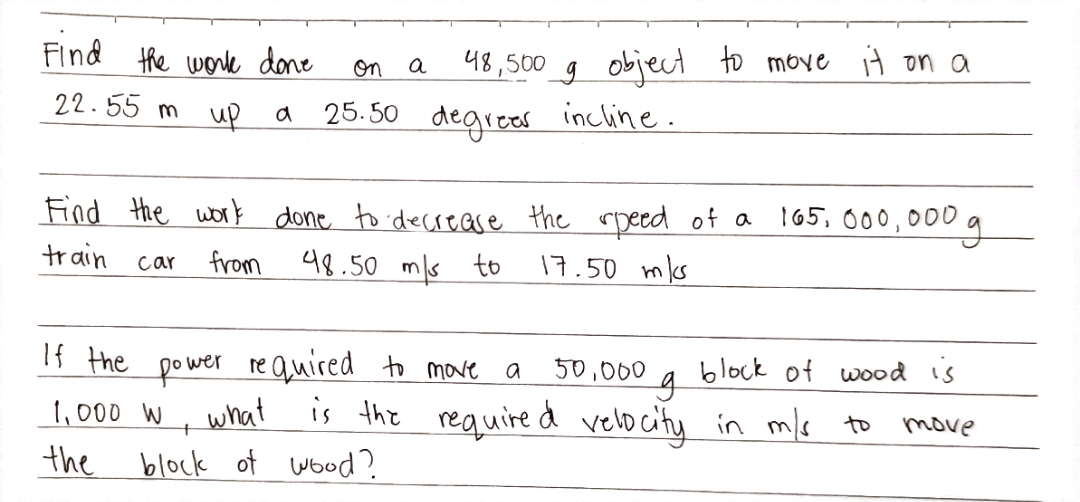 Find the work done on a 48,500 g object to move it on a
22.55 m up a 25.50 degrees incline.
Find the work done to decrease the speed of a 165,000,000 g
train car from 48.50 m/s to 17.50 m/s
If the power required to move a 50,000 g block of wood is
1,000 W, what is the required velocity in m/s to move
the block of wood?